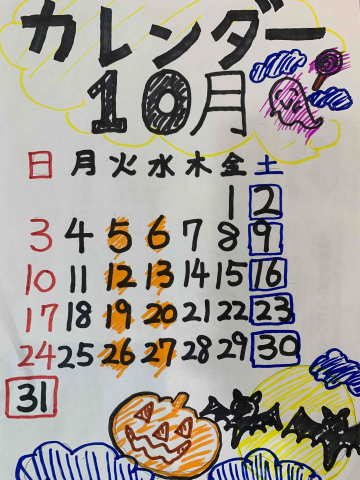 カレンダー
10月
日 月 火 水 木 金 土
1 2
3 4 5 6 7 8 9
10 11 12 13 14 15 16
17 18 19 20 21 22 23
24 25 26 27 28 29 30
31